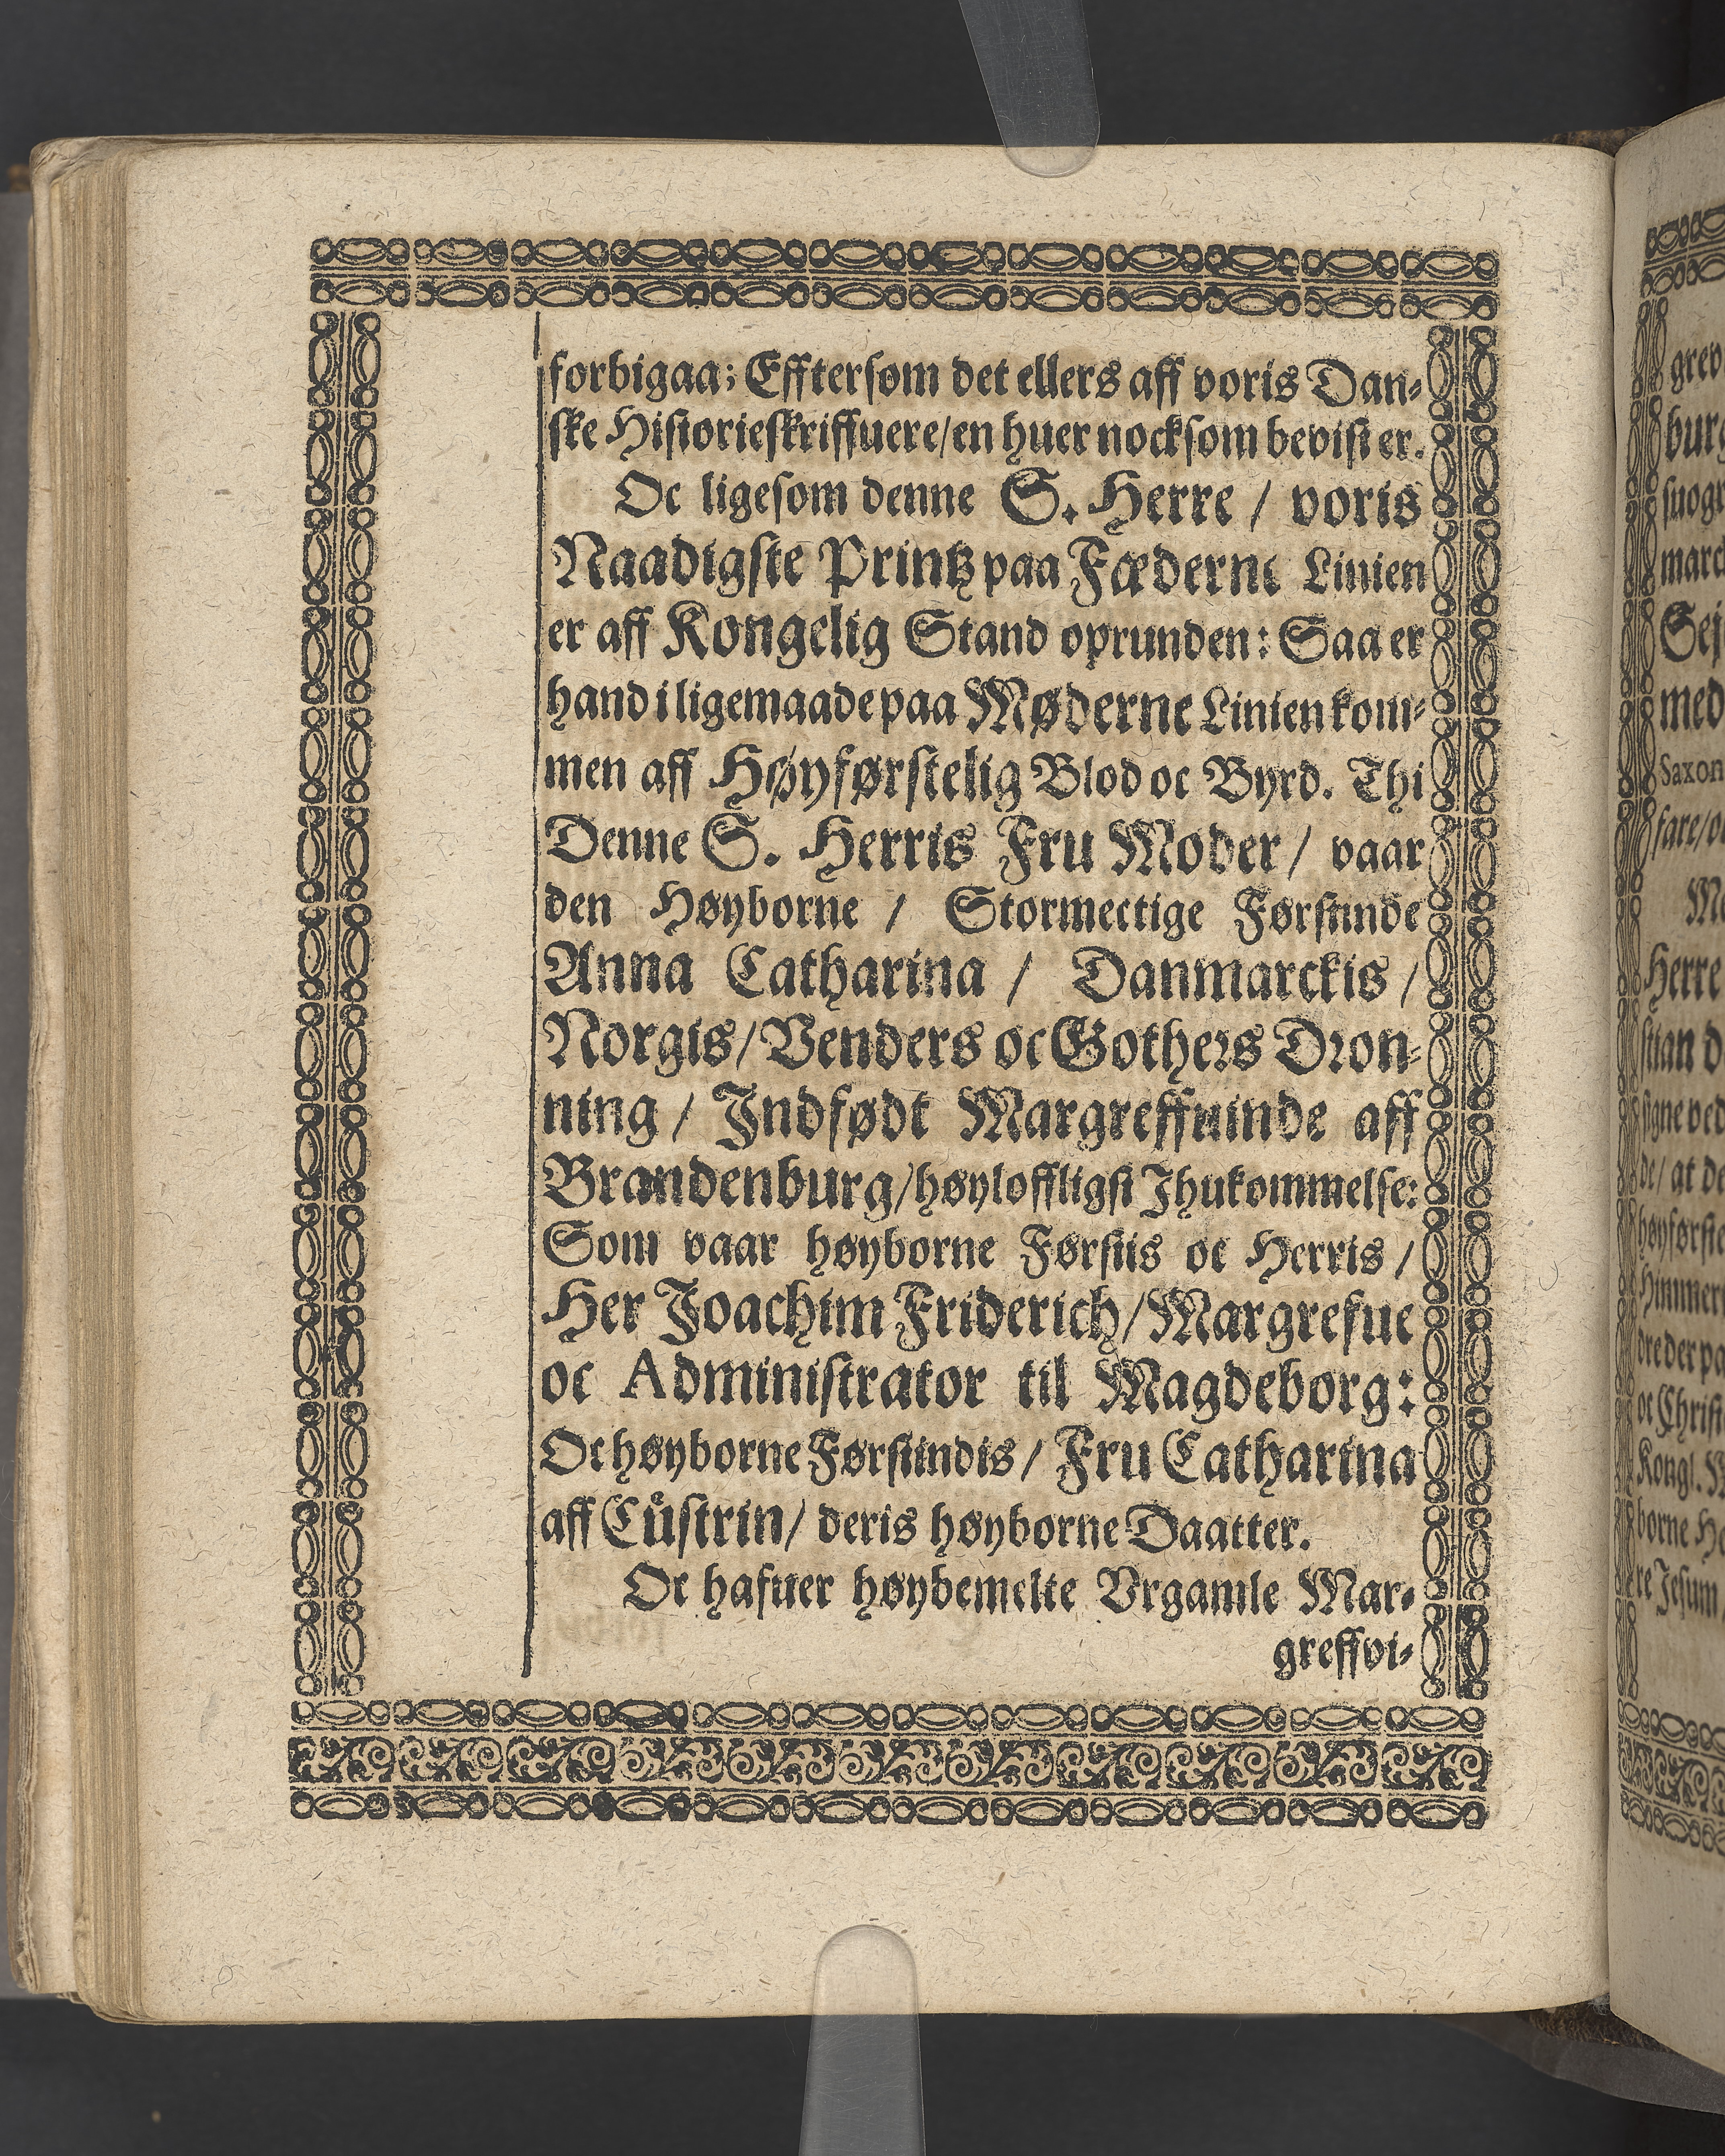 forbigaa; Efftersom det ellers aff voris Dan-
ske Historieskriffuere/en huer nocksom bevist er.
Oc ligesom denne S. Herre / voris
Naadigste Printz paa Fæderne Linien
er aff Kongelig Stand oprunden: Saa er
hand i ligemaade paa Møderne Linien kom-
men aff Høyførstelig Blod oc Byrd. Thi
Denne S. Herris Fru Moder / vaar
den Høyborne / Stormectige Førstinde
Anna Catharina / Danmarckis /
Norgis/ Venders oc Gothers Dron-
ning / Indfødt Margreffuinde aff
Brandenburg/høyloffligst Ihukommelse:
Som vaar høyborne Førstis oc Herris /
Her Joachim Friderich/Margrefue
oc Administrator til Magdeborg:
Oc høyborne Førstindis / Fru Catharina
aff Cüstrin/ deris høyborne Daatter.
Oc hafuer høybemelte Vrgamle Mar-
greffvi-
grev
burg
suogr
marck
Sej
med
Saxon
fare/o
Herre
stian d
signe ved
de/ at de
høyførste
Himmer
dre der pa
oc Christ
Kongl.
borne He
re Jesum